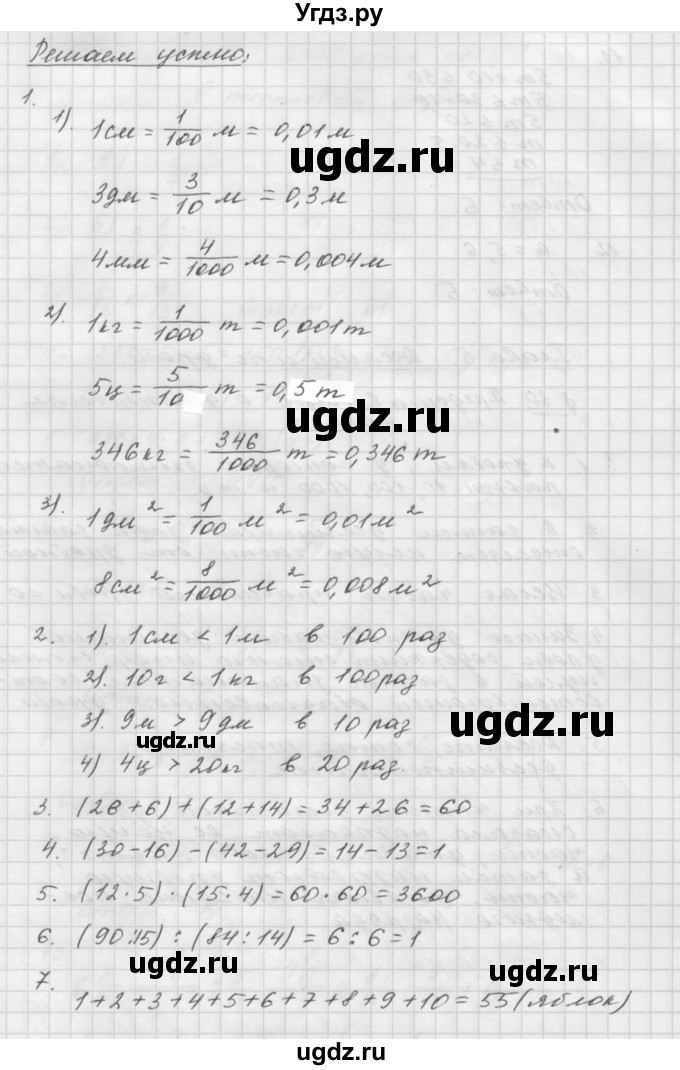 Угдз.ру
Решаем устно:
1.
1). 1см = 1/100 м = 0,01м
ugdz.ru
3дм = 3/10 м = 0,3м
4мм = 4/1000 м = 0,004м
2). 1кг = 1/1000 т = 0,001т
5ц = 5/10 т = 0,5т
ugdz.ru
346кг = 346/1000 т = 0,346т
3). 1дм² = 1/100 м² = 0,01м²
ugdz.ru
8см² = 8/1000 м² = 0,008м²
2. 1). 1см < 1м в 100 раз
2). 10г < 1кг в 100раз
3). 9м > 9дм в 10 раз
ugdz.ru
ugdz.ru
4) 4ц > 20кг в 20 раз.
3. (28+6)+(12+14)=34+26=60
4. (30-16)-(42-29)=14-13=1
5. (12·5)·(15·4)=60·60=3600
6. (90:15):(84:14)=6:6=1
ugdz.ru
ugdz.ru
7.
1+2+3+4+5+6+7+8+9+10=55(яблок)
ugdz.ru